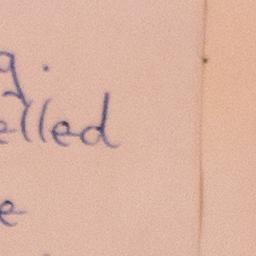 g.
elled
e